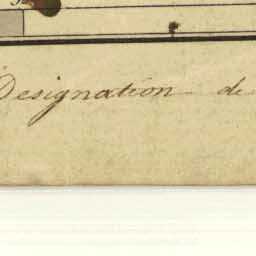 Designation de